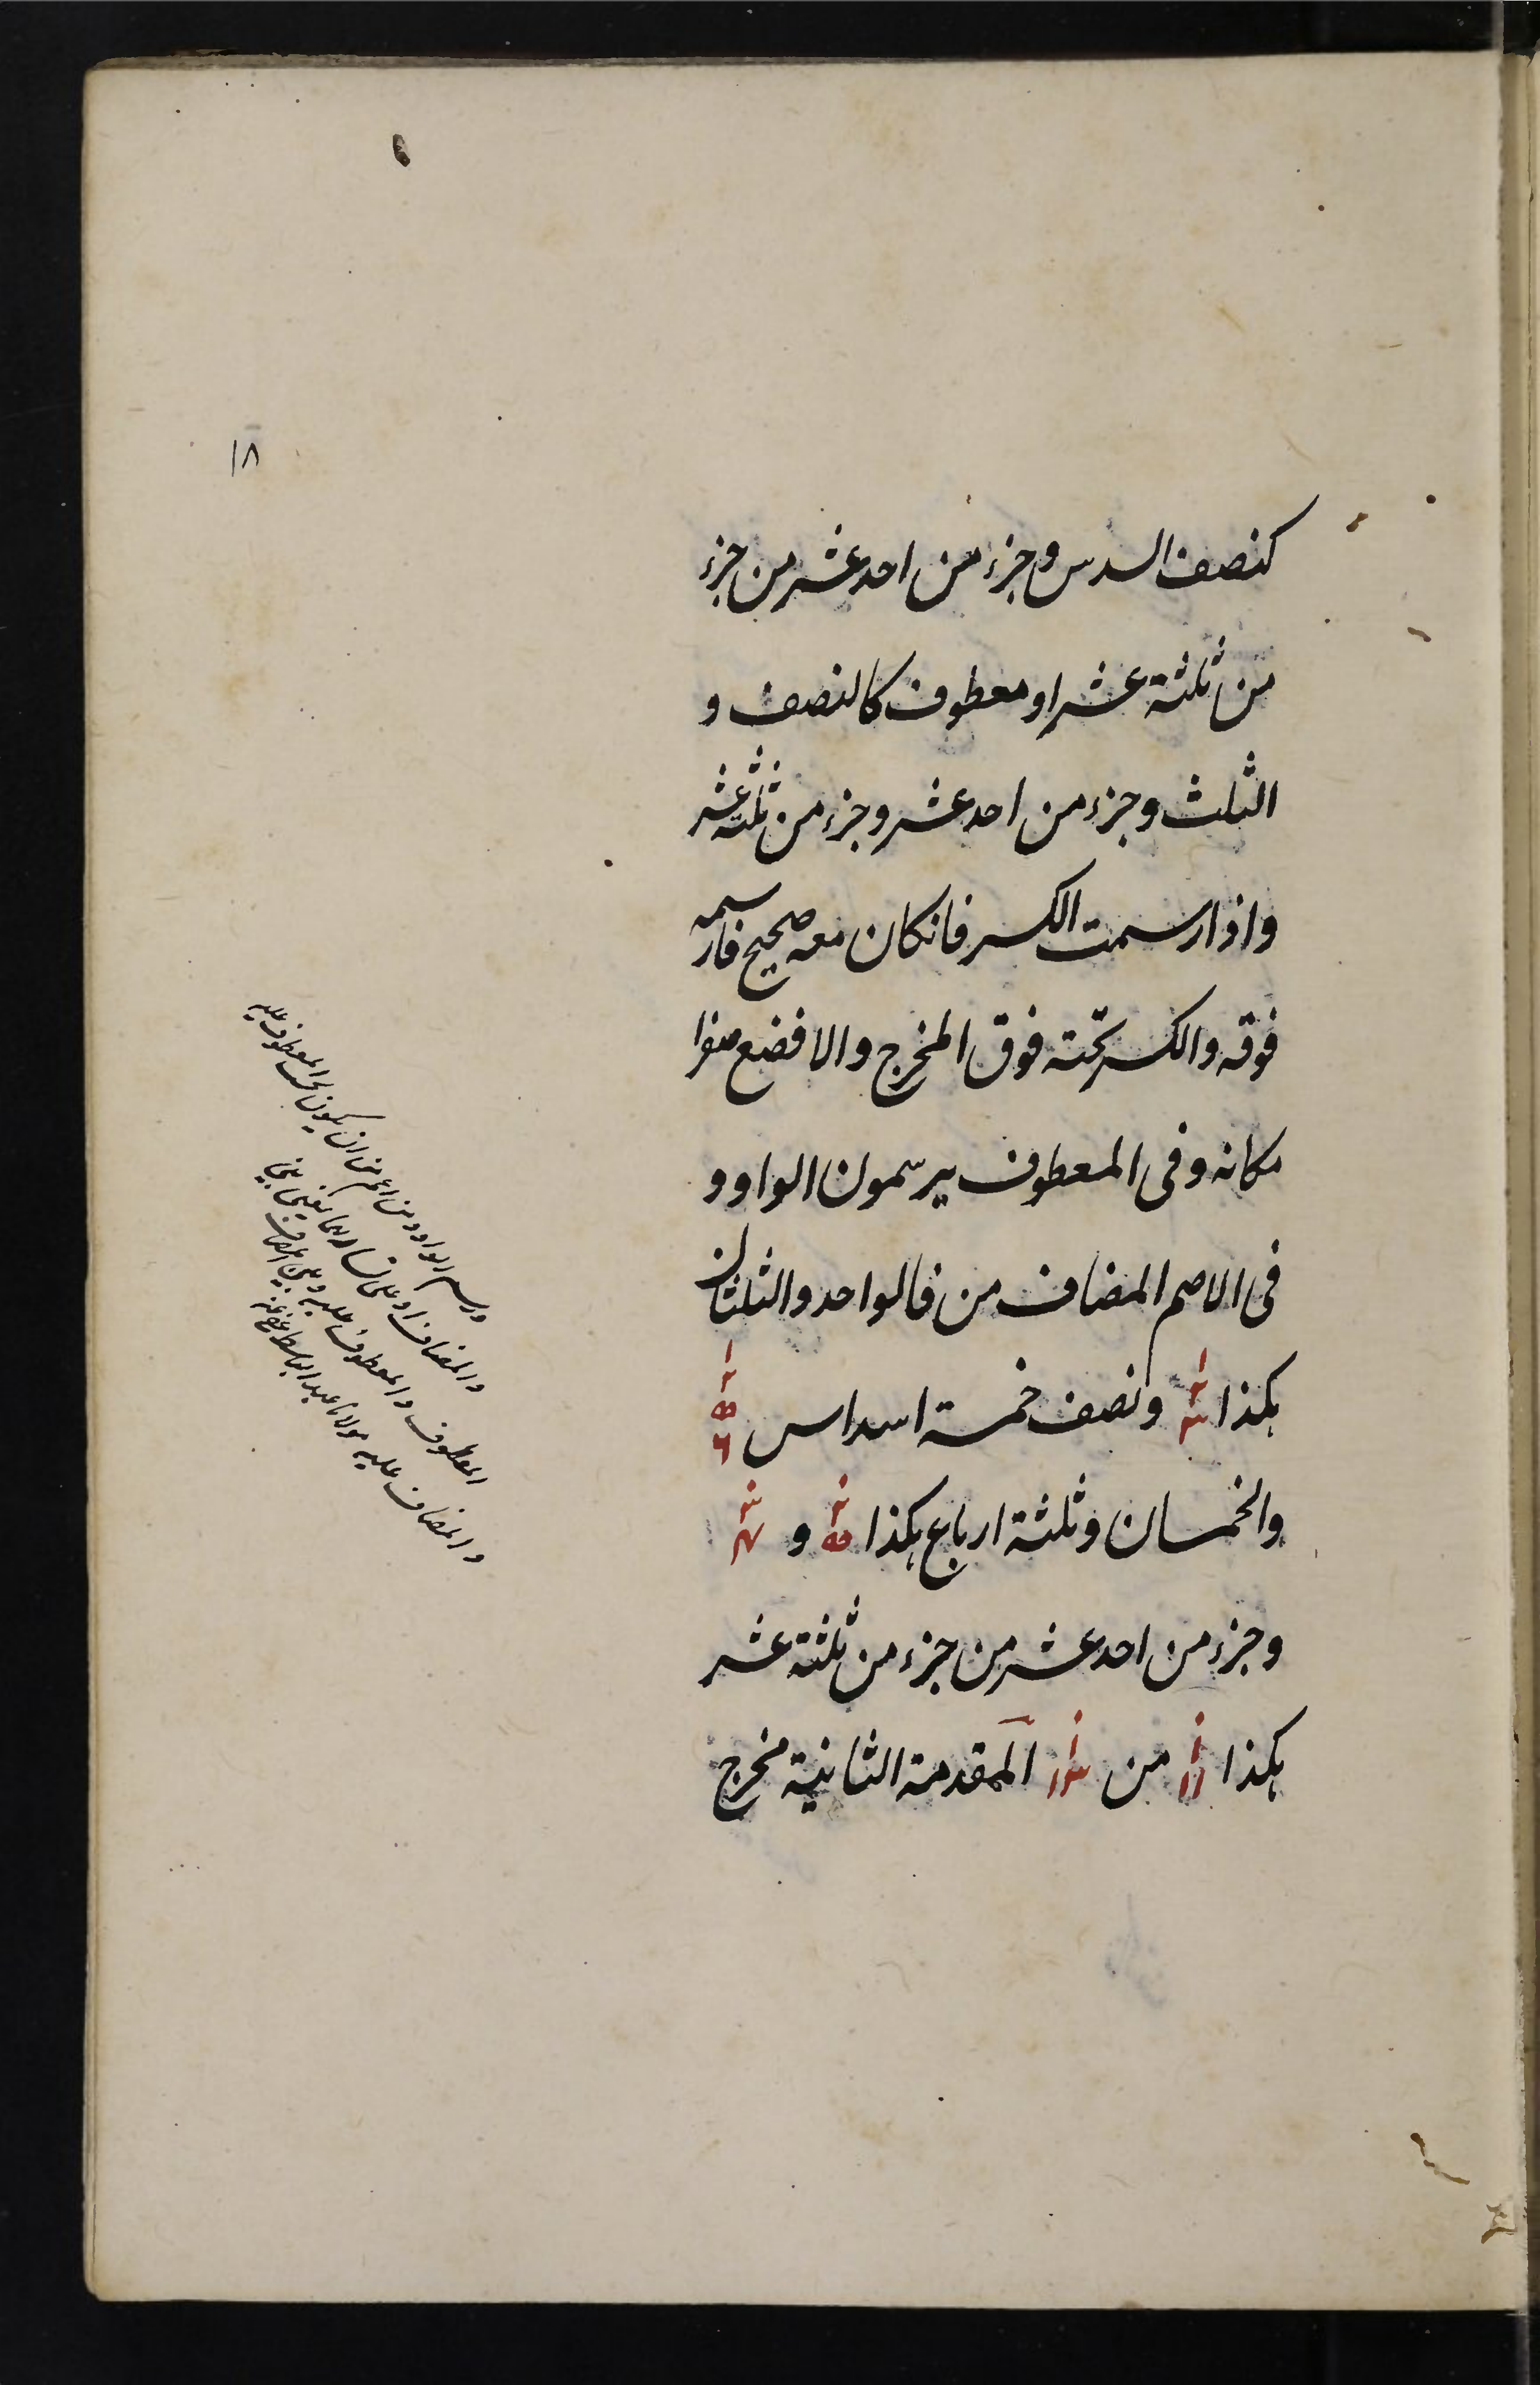 ١٨
كنصف السدس وجزء من احد عشر من جزء
من ثلثة عشر او معطوف كالنصف و
الثلث وجزء من احد عشر وجزء من ثلثة عشر
واذا رسمت الكسر فانكان معه صحيح فارسمه
فوقه والكسر تحته فوق المخرج والا فضع صفرا
مكانه وفى المعطوف يرسمون الواو و
فى الاصم المضاف من فالواحد والثلثان
هكذا ١ ٢ ٣ ونصف خمسة اسداس ١ ٢ ٥ ٦
والخمسان وثلثة ارباع هكذا ٢ ٥ و ٣ ٤
وجزء من احد عشر من جزء من ثلثة عشر
هكذا ١ ١١ من ١ ١٣ المقدمة الثانية مخرج
ورسم الواو ومن اعم من ان يكون المعطوف عليه
والمضاف
المعطوف والمعطوف عليه وبين المضاف
والمضاف عليه مولانا عبد الباسط